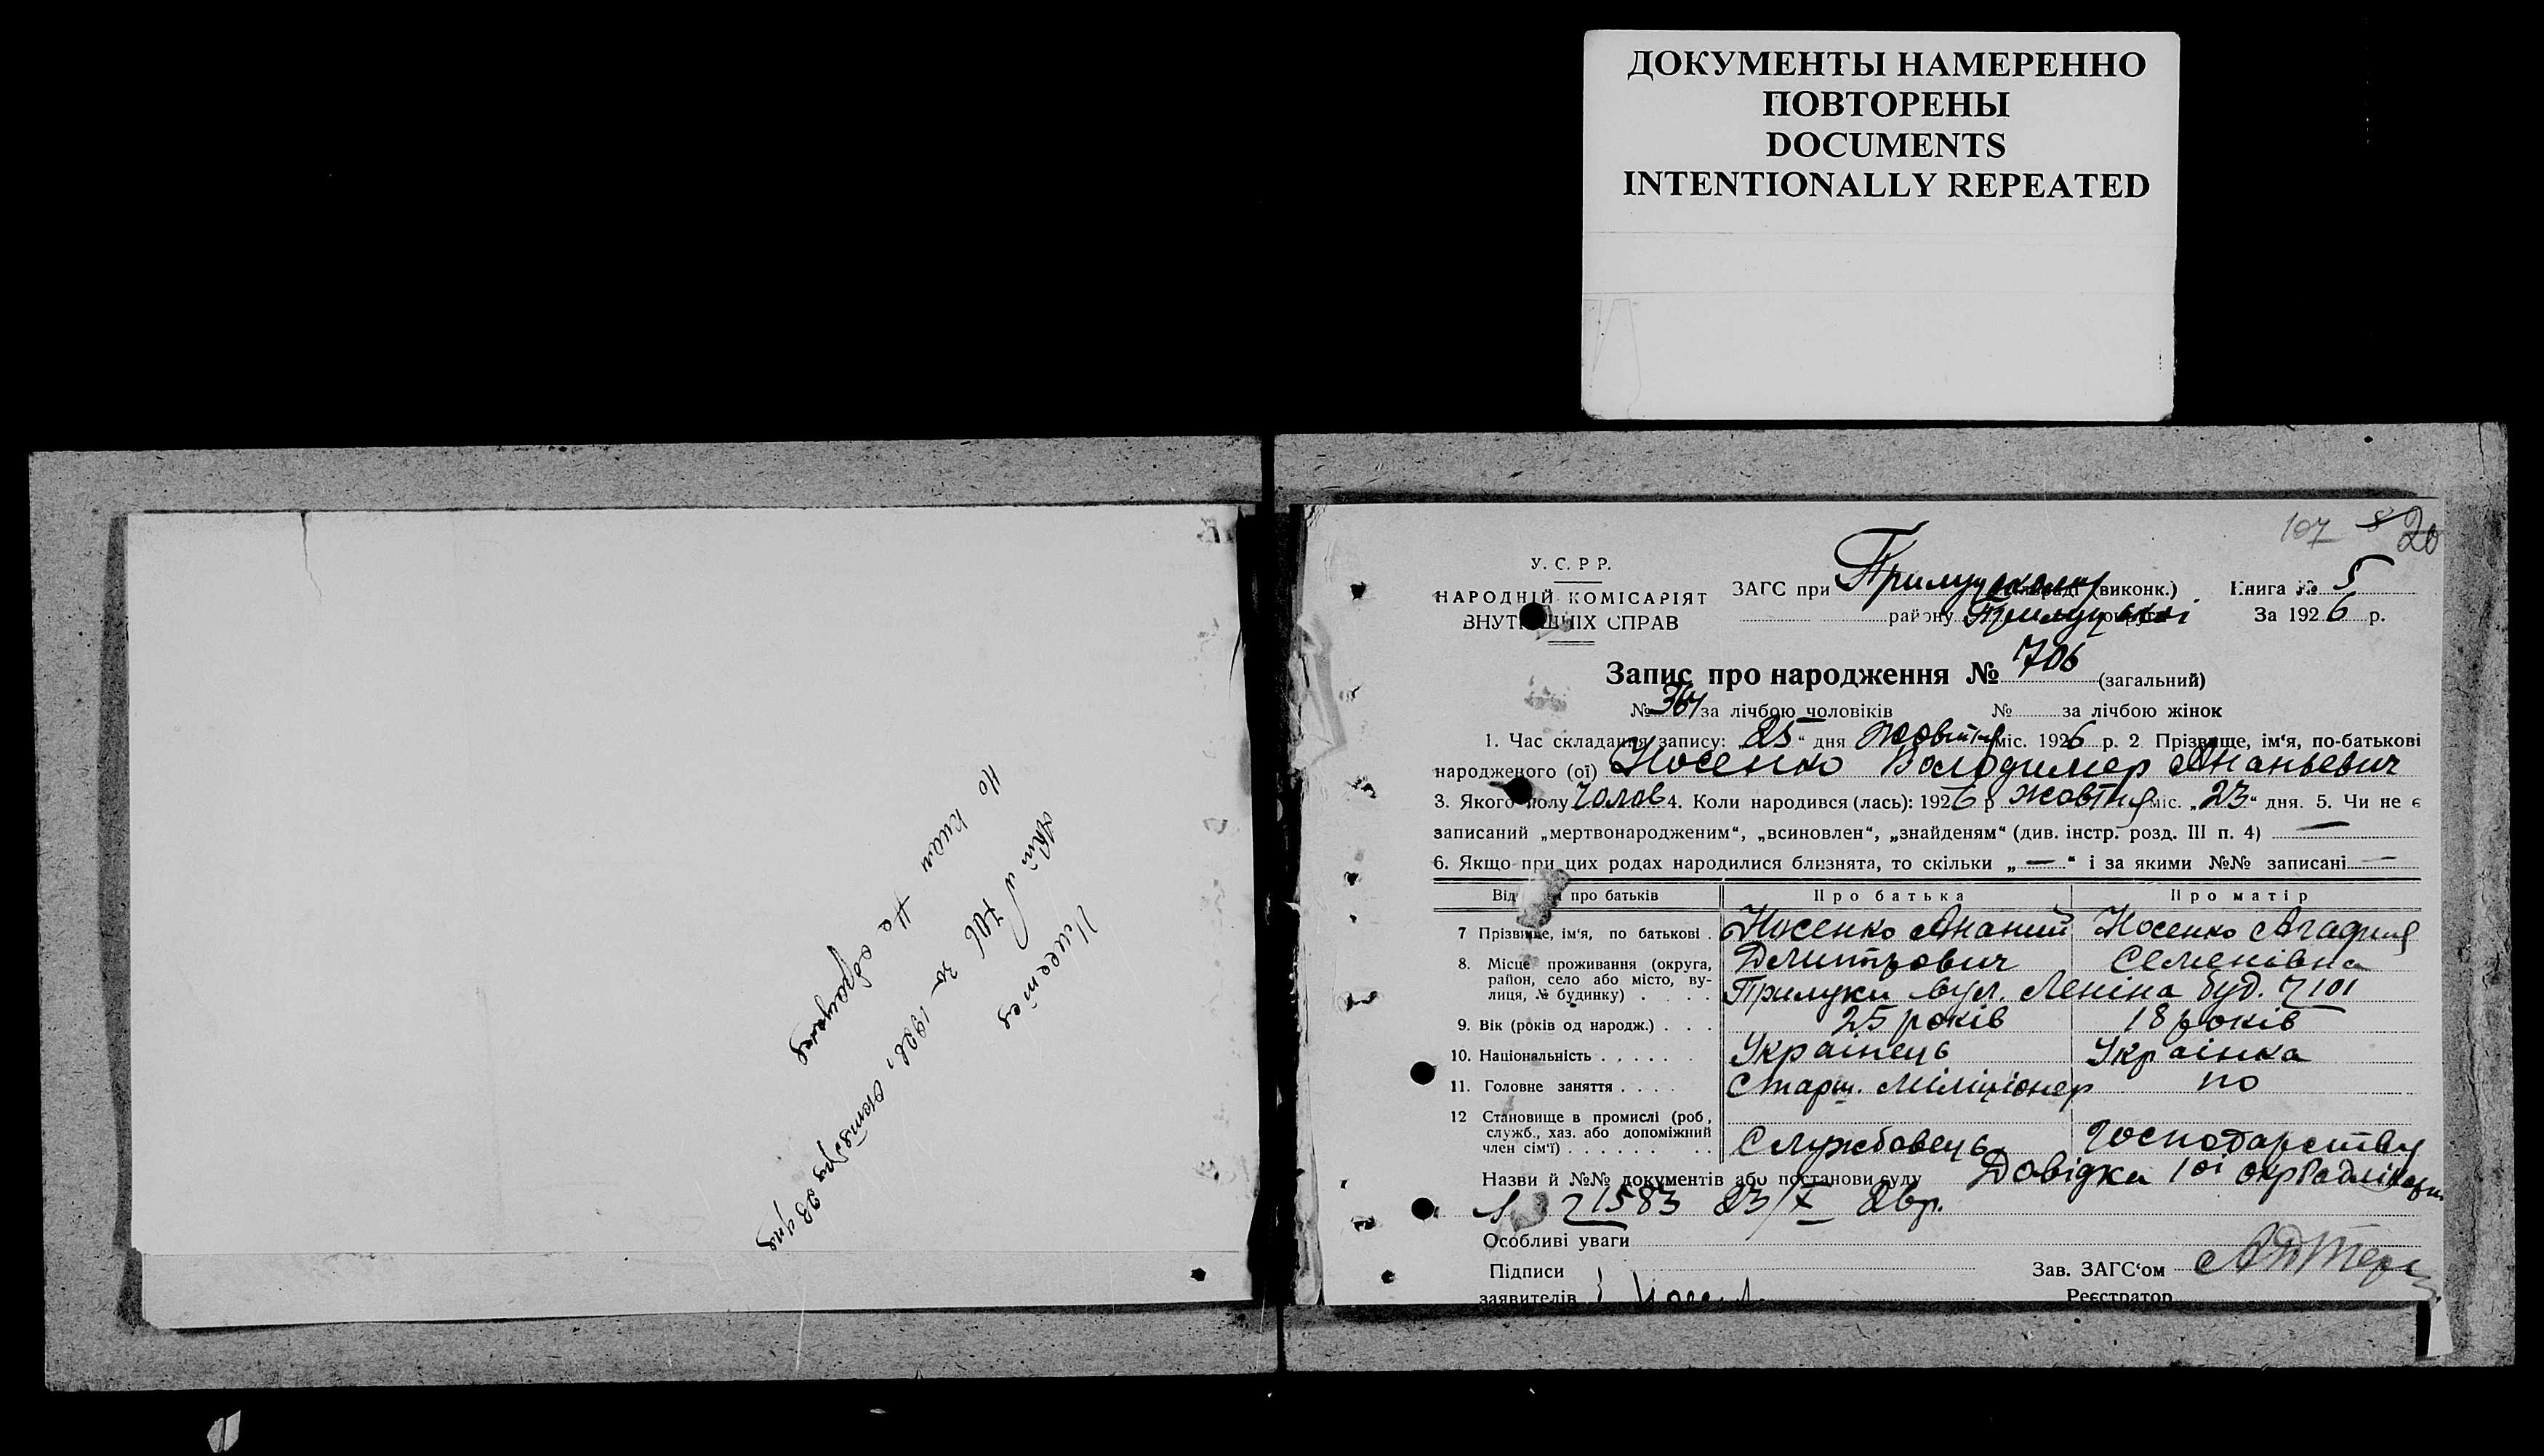 ДОКУМЕНТЫ НАМЕРЕННО
ПОВТОРЕНЫ
DOCUMENTS
INTENTIONALLY REPEATED
107 8 20
У. С. Р Р.
НАРОДНІЙ КОМІСАРІЯТ
ВНУТРІШНІХ СПРАВ
ЗАГС при (виконк.)
району Прилуцької
Книга № 5
За 1926 р.
Запис про народження № 706 (загальний)
№ 364 за лічбою чоловіків № за лічбою жінок
1. Час складання запису: „25“ дня жовтня міс. 1926 р. 2 Прізвище, ім'я, по-батькові
народженого (ої) Носенко Володимер Ананьевич
3. Якого полу Чолов 4. Коли народився (лась): 1926 р жовтня міс. „23“ дня. 5. Чи не є
записаний „мертвонародженим“, „всиновлен“, „знайденям“ (див. інстр. розд. III п. 4) —
6. Якщо при цих родах народилися близнята, то скільки „—“ і за якими №№ записані —
про батьків Про батька Про матір
7 Прізвище, ім'я, по батькові . Носенко Ананий Носенко Агафия
Дмитрович Семенівна
8. Місце проживання (округа,
район, село або місто, ву-
лиця, № будинку) . . . . Прилуки вул. Леніна буд. 101
9. Вік (років од народж.) . . . 25 років 18 років
10. Національність . . . . . . Українець Українка
11. Головне заняття . . . . Старш. міліціонер по
12 Становище в промислі (роб,
служб., хаз. або допоміжний
член сім'ї) . . . . . . . . Службовець господарству
Назви й №№ документів або постанови суду Довідка 1ої
21583 23/X 26р.
Особливі уваги
Підписи
заявителів
Зав. ЗАГС'ом
Реєстратор
Имеется
706 за 1926
По книги